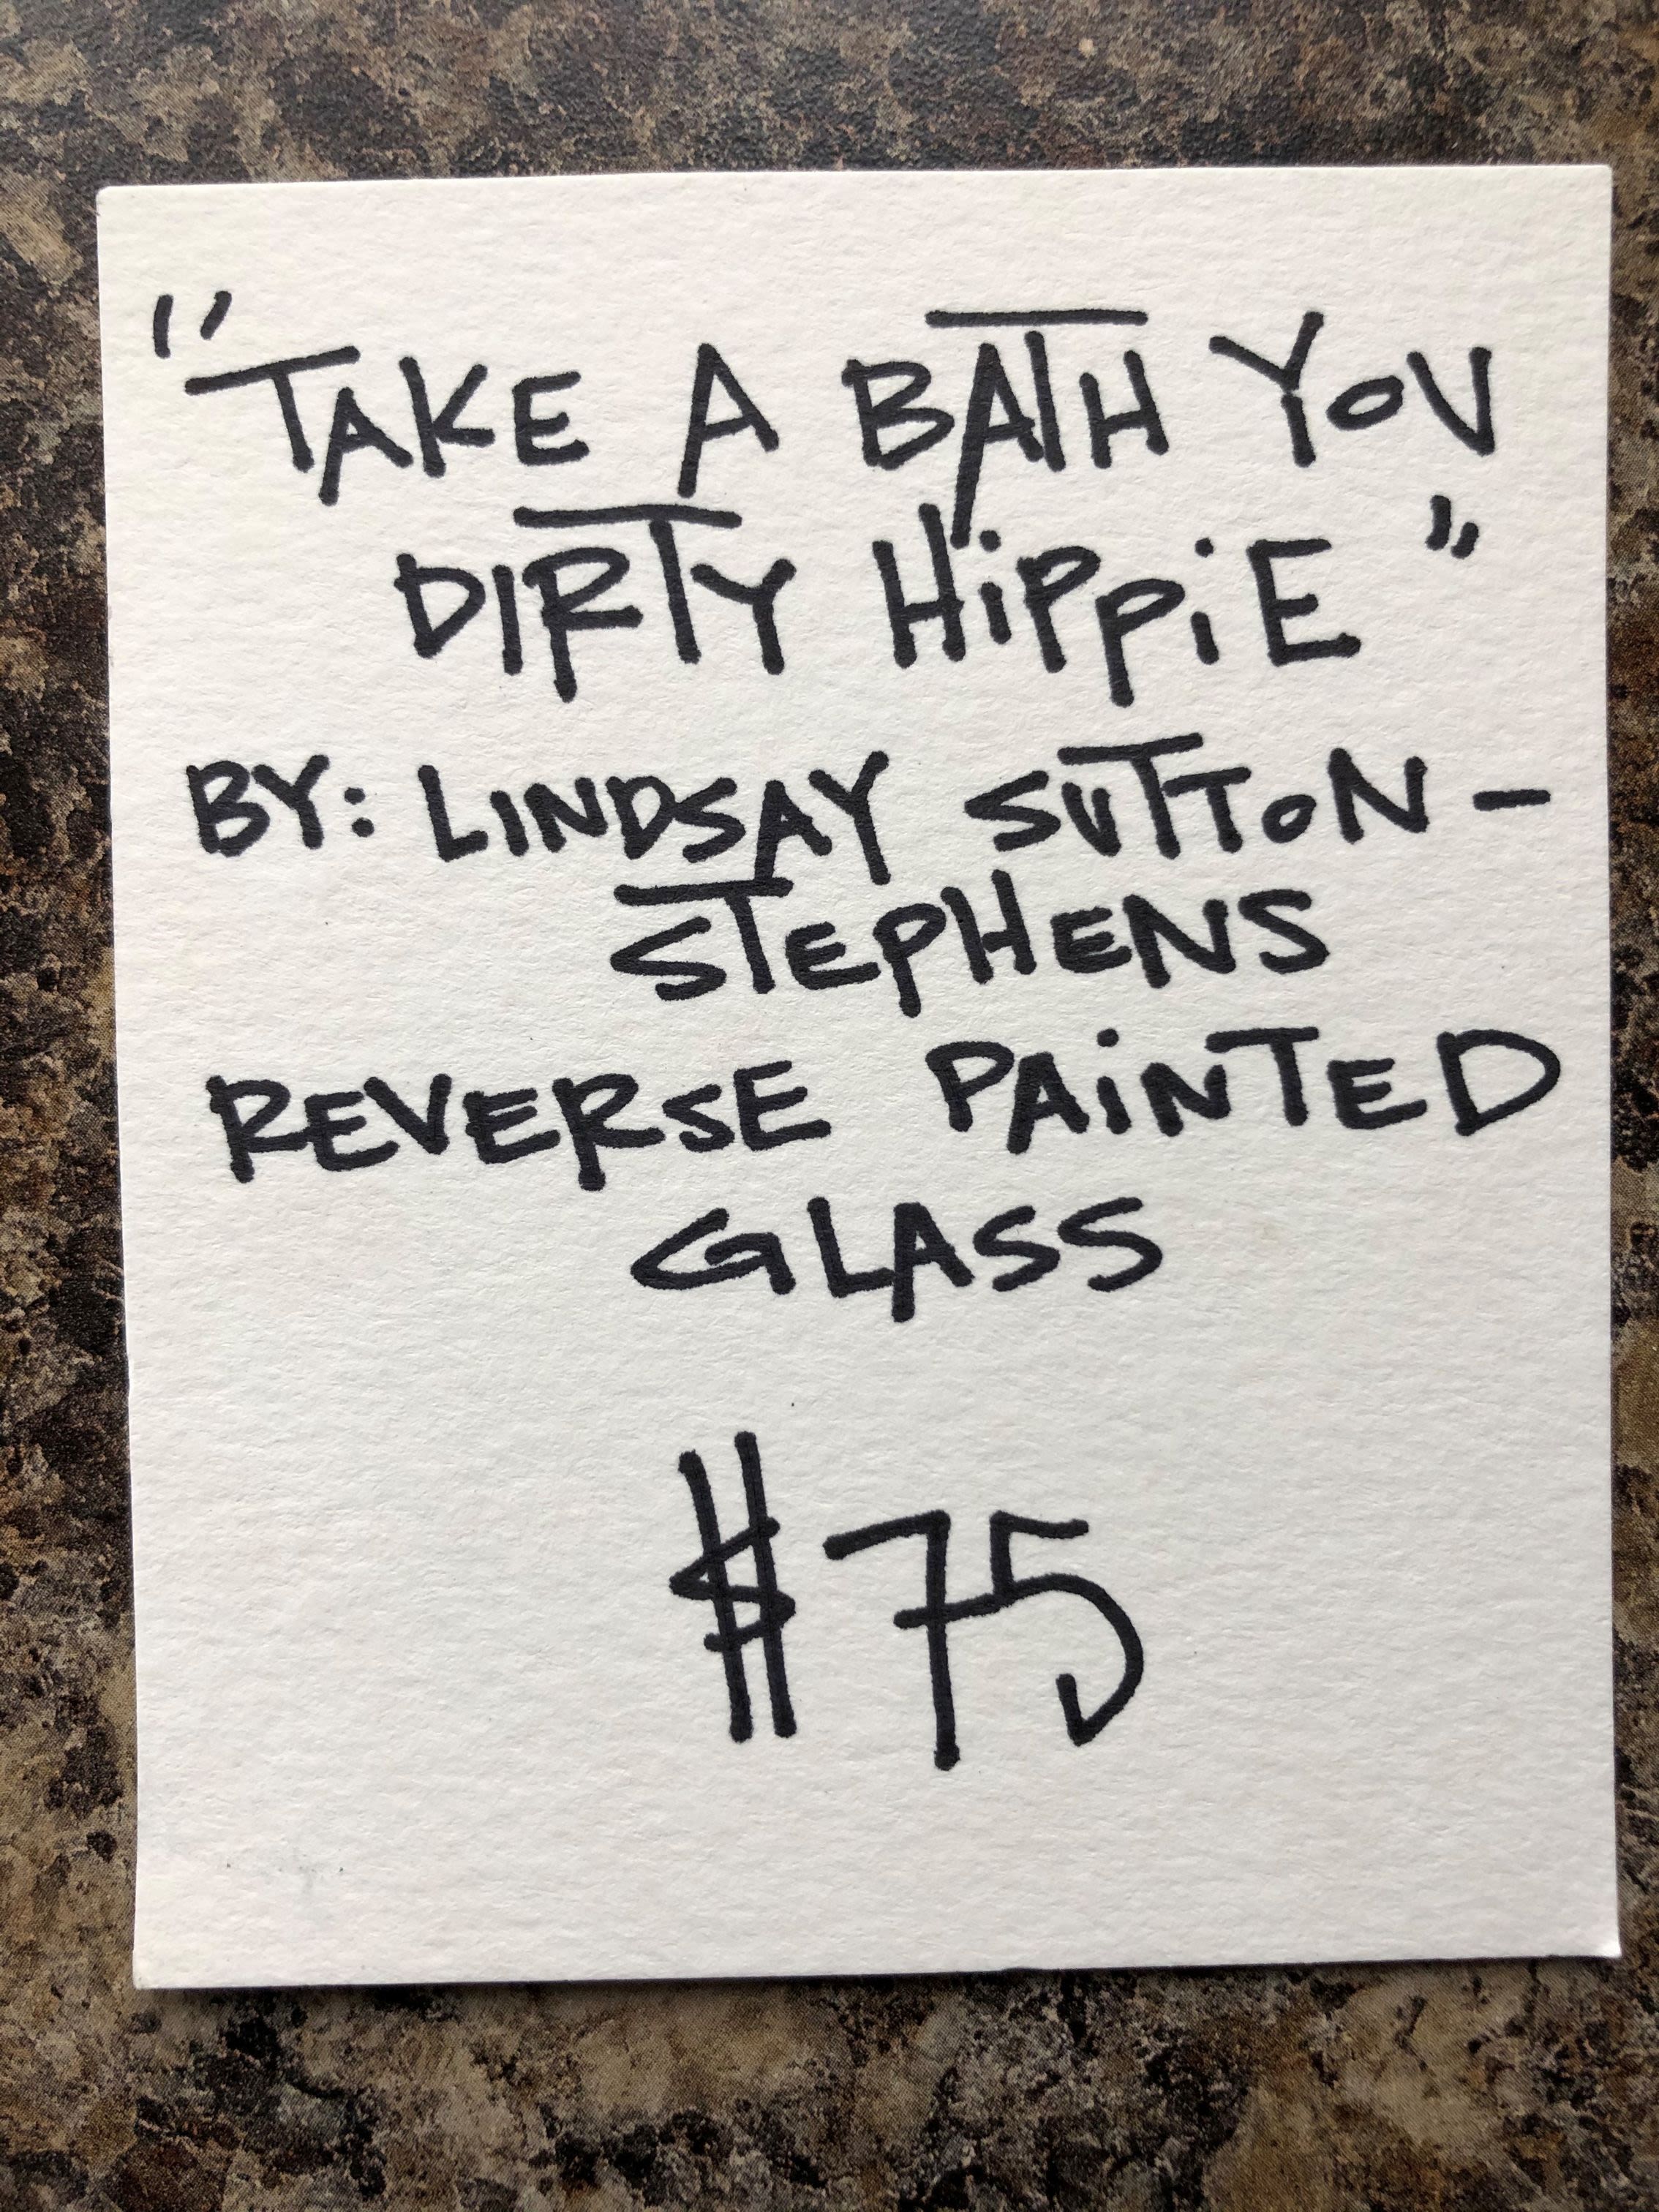 "TAKE A BATH YOU
DIRTY HiPPiE"
BY: LINDSAY SUTTON-
STEPHENS
REVERSE PAiNTED
GLASS
$75